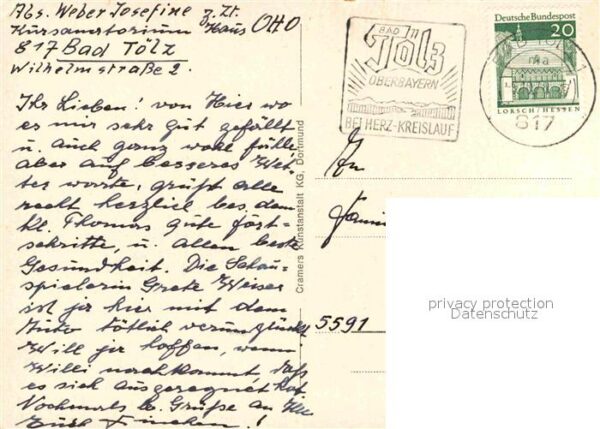 Abs. Weber Josefine z. Zt.
Kursanatorium Haus OHO
817 Bad Tölz
Wilhelmstraße 2.
Ihr Lieben! von Hier wo
es mir sehr gut gefällt
u. auch ganz wohl fühle
aber auf besseres Wet-
ter warte, grüßt alle
recht herzlich bes. dem
kl. Thomas gute fort-
schritte, u. allen beste
Gesundheit. Die Schau-
spielerin Grete Weiser
ist ja hier mit dem
Auto tötlich verunglückt
Will ja hoffen, wenn
Willi nachkommt daß
es sich ausgeregnet hat.
Nochmals lb. Grüße an Alle
Eure Finchen!
Cramers Kunstanstalt KG, Dortmund
BAD
Tölz
OBERBAYERN
BEI HERZ-KREISLAUF
Deutsche Bundespost
20
LORSCH/HESSEN
BAD TÖLZ 1
ma
817
An
Famili
5591
privacy protection
Datenschutz